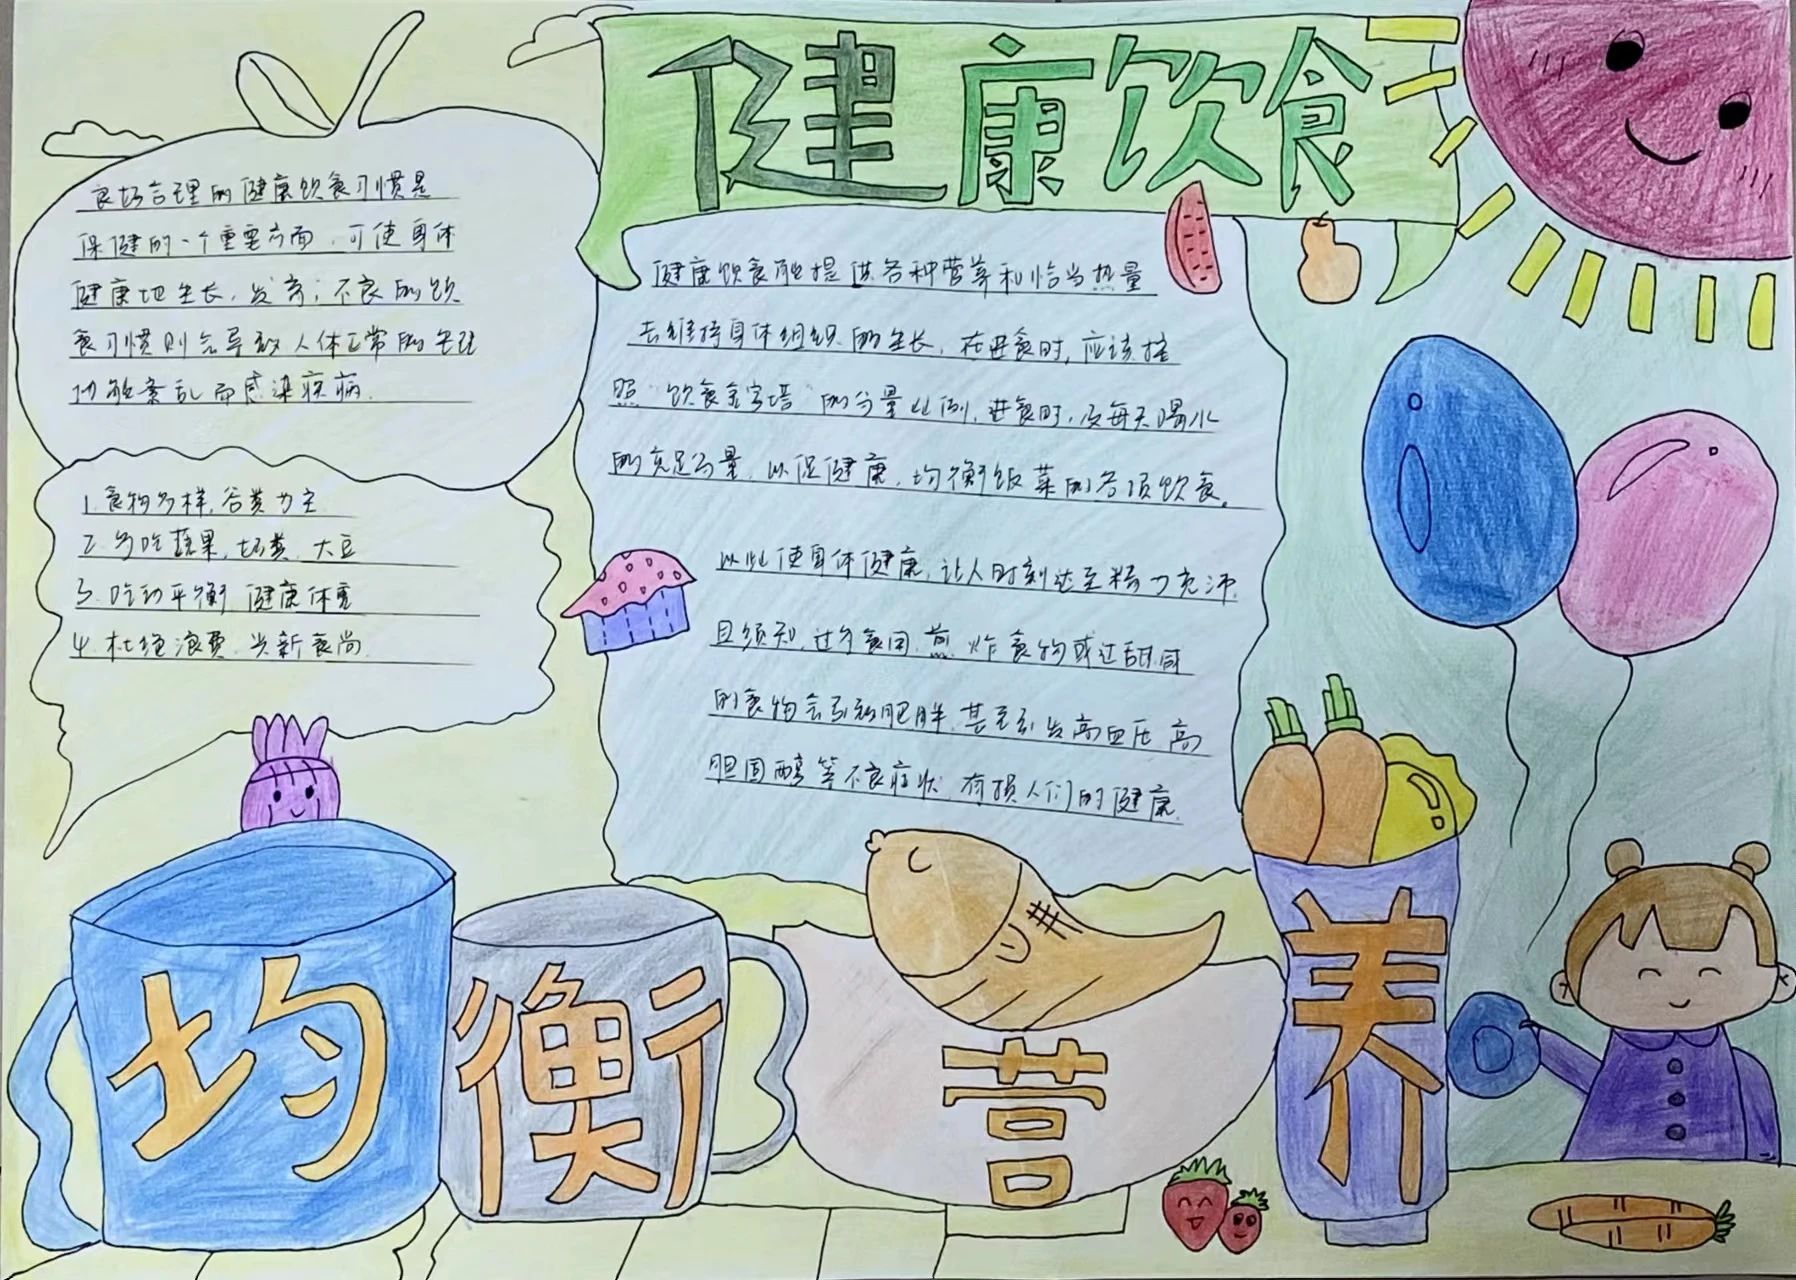 健康饮食
良好合理的健康饮食习惯是
保健的一个重要方面,可使身体
健康地生长,发育;不良的饮
食习惯则会导致人体正常的生理
功能紊乱而感染疾病.
1.食物多样,谷类为主
2.多吃蔬果,奶类,大豆
3.吃动平衡 健康体重
4.杜绝浪费.兴新食尚
健康饮食能提供各种营养和恰当热量
去维持身体组织的生长,在进食时,应该按
照“饮食金字塔”的分量比例,进食时,及每天喝水
的充足分量,以促健康,均衡饭菜的各项饮食。
以此使身体健康,让人时刻达至精力充沛
且须知,过多食用,煎炸食物或过甜咸
的食物会引致肥胖,甚至引发高血压 高
胆固醇等不良症状,有损人们的健康.
均衡营养